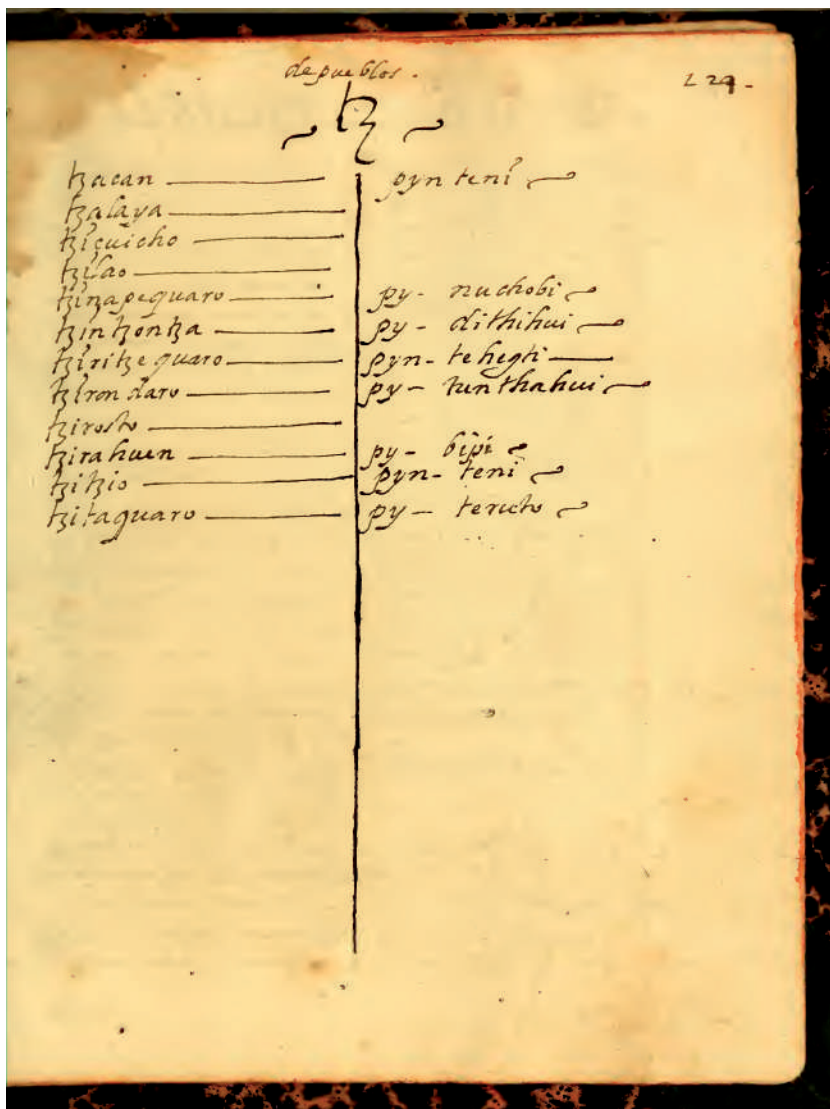 de pueblos. 229.
tz
tzacan pyn teni
tzalaya
tziçuicho
tzilao
tzinapequaro py- nuchobi
tzintzontza py- dithihui
tziritzequaro pyn- tehegti
tzirondaro py- tunthahui
tzirosto
tzirahuen py- bipi
tzitzio pyn- teni
tzitaquaro py- teructo